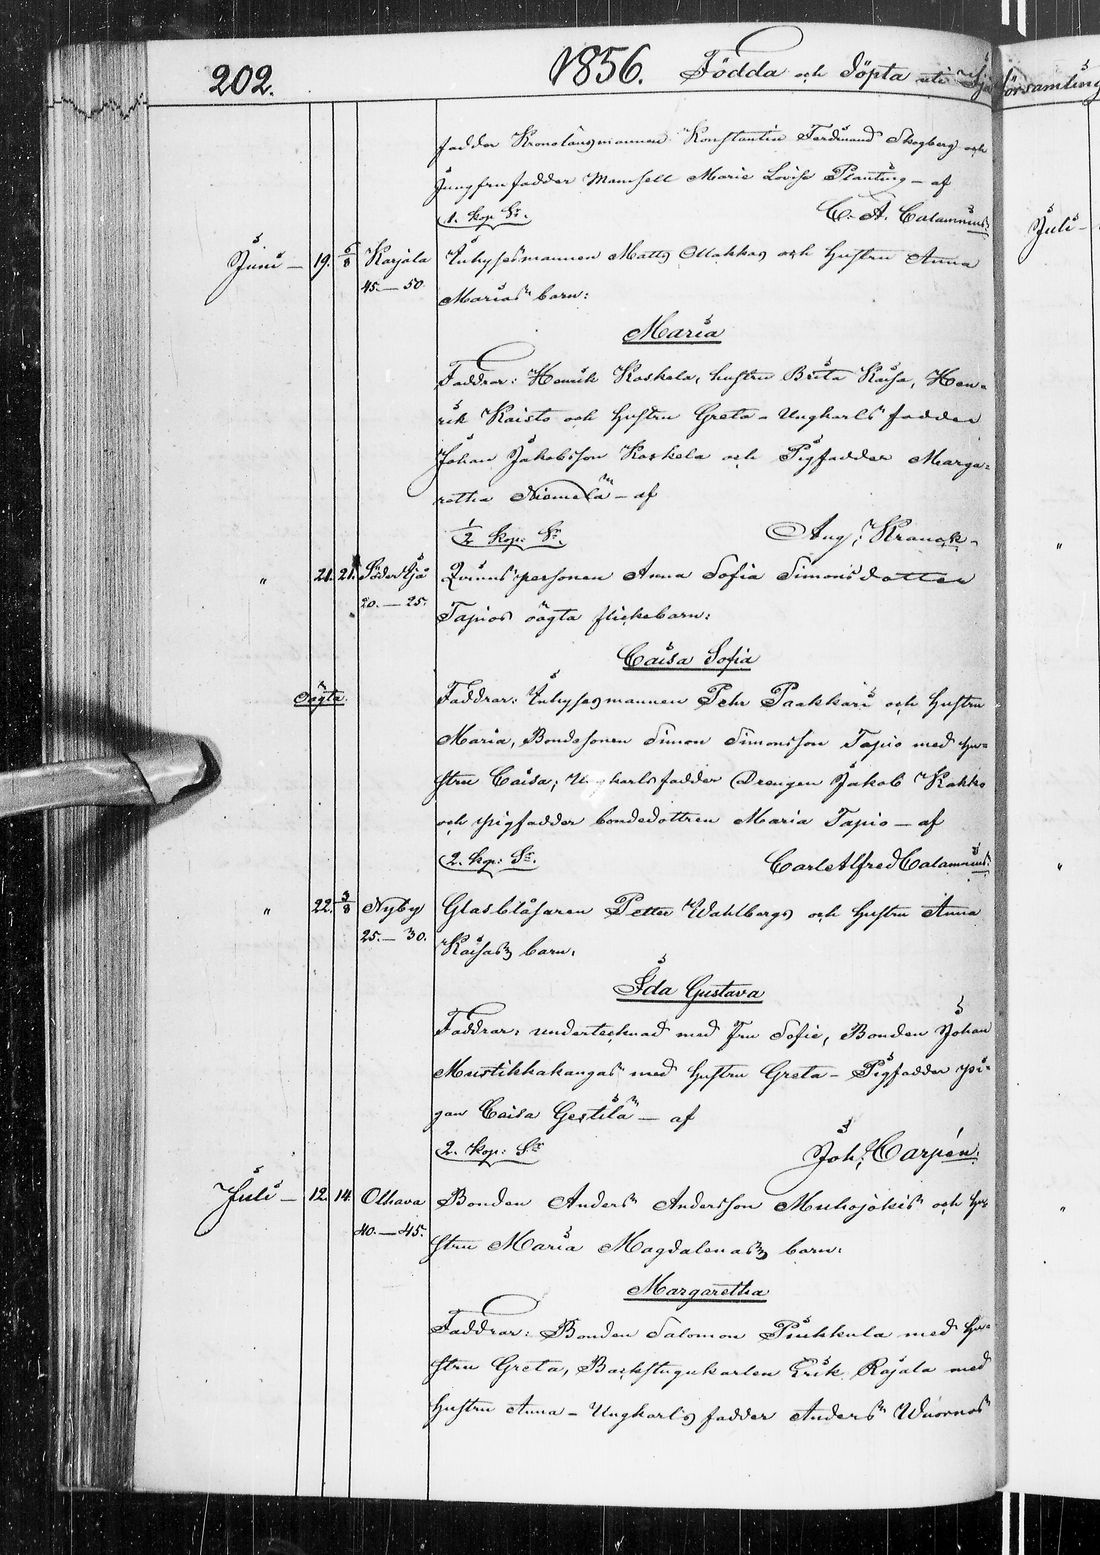 202. 1856. Födda och Döpta uti Ijo församling
fadder Kronolänsmannen Konstantin Ferdinand Skogberg och
Jungfrufadder Mamsell Maria Lovisa Planting – af
1. kop. Sr. C. A. Calamnius.
Juni – 19. 6/8 Karjala Inhysesmannen Matts Ollakkas och hustru Anna
45.–50. Marias barn:
Maria
Faddrar: Henrik Koskela, hustru Brita Kaisa, Hen-
rik Kaisto och hustru Greta – Ungkarls fadder
Johan Jakobsson Koskela och Pigfadder Marga-
retha Niemelä – af
1/2 Kop: Sr. Aug: Kranck.
" 21. 21. Söder Ijo Qvinnspersonen Anna Sofia Simonsdotter
20.–25. Tapios oägta flickebarn:
Caisa Sofia
Oägta. Faddrar: Inhysesmannen Pehr Paakkari och hustru
Maria, Bondesonen Simon Simonsson Tapio med hu-
stru Caisa; Ungkarlsfadder Drengen Jakob Kakko
och pigfadder bondedottren Maria Tapio – af
2. Kop: Sr. Carl Alfred Calamnius.
" 22. 3/8 Nyby Glasblåsaren Petter Wahlbergs och hustru Anna
25.–30. Kaisas barn:
Ida Gustava
Faddrar: undertecknad med Fru Sofie, Bonden Johan
Mustikkakangas med hustru Greta – Pigfadder pi-
gan Caisa Gestilä – af
2. Kop: Sr. Joh: Carpén.
Juli – 12. 14. Olhava Bonden Anders Andersson Muhojokis och hu-
40.–45. stru Maria Magdalenas barn:
Margaretha
Faddrar: Bonden Salomon Pinkkula med hu-
stru Greta, Backstugukarlen Erik Rajala med
hustru Anna – Ungkarls fadder Anders Wuornos
Juli –
"
"
"